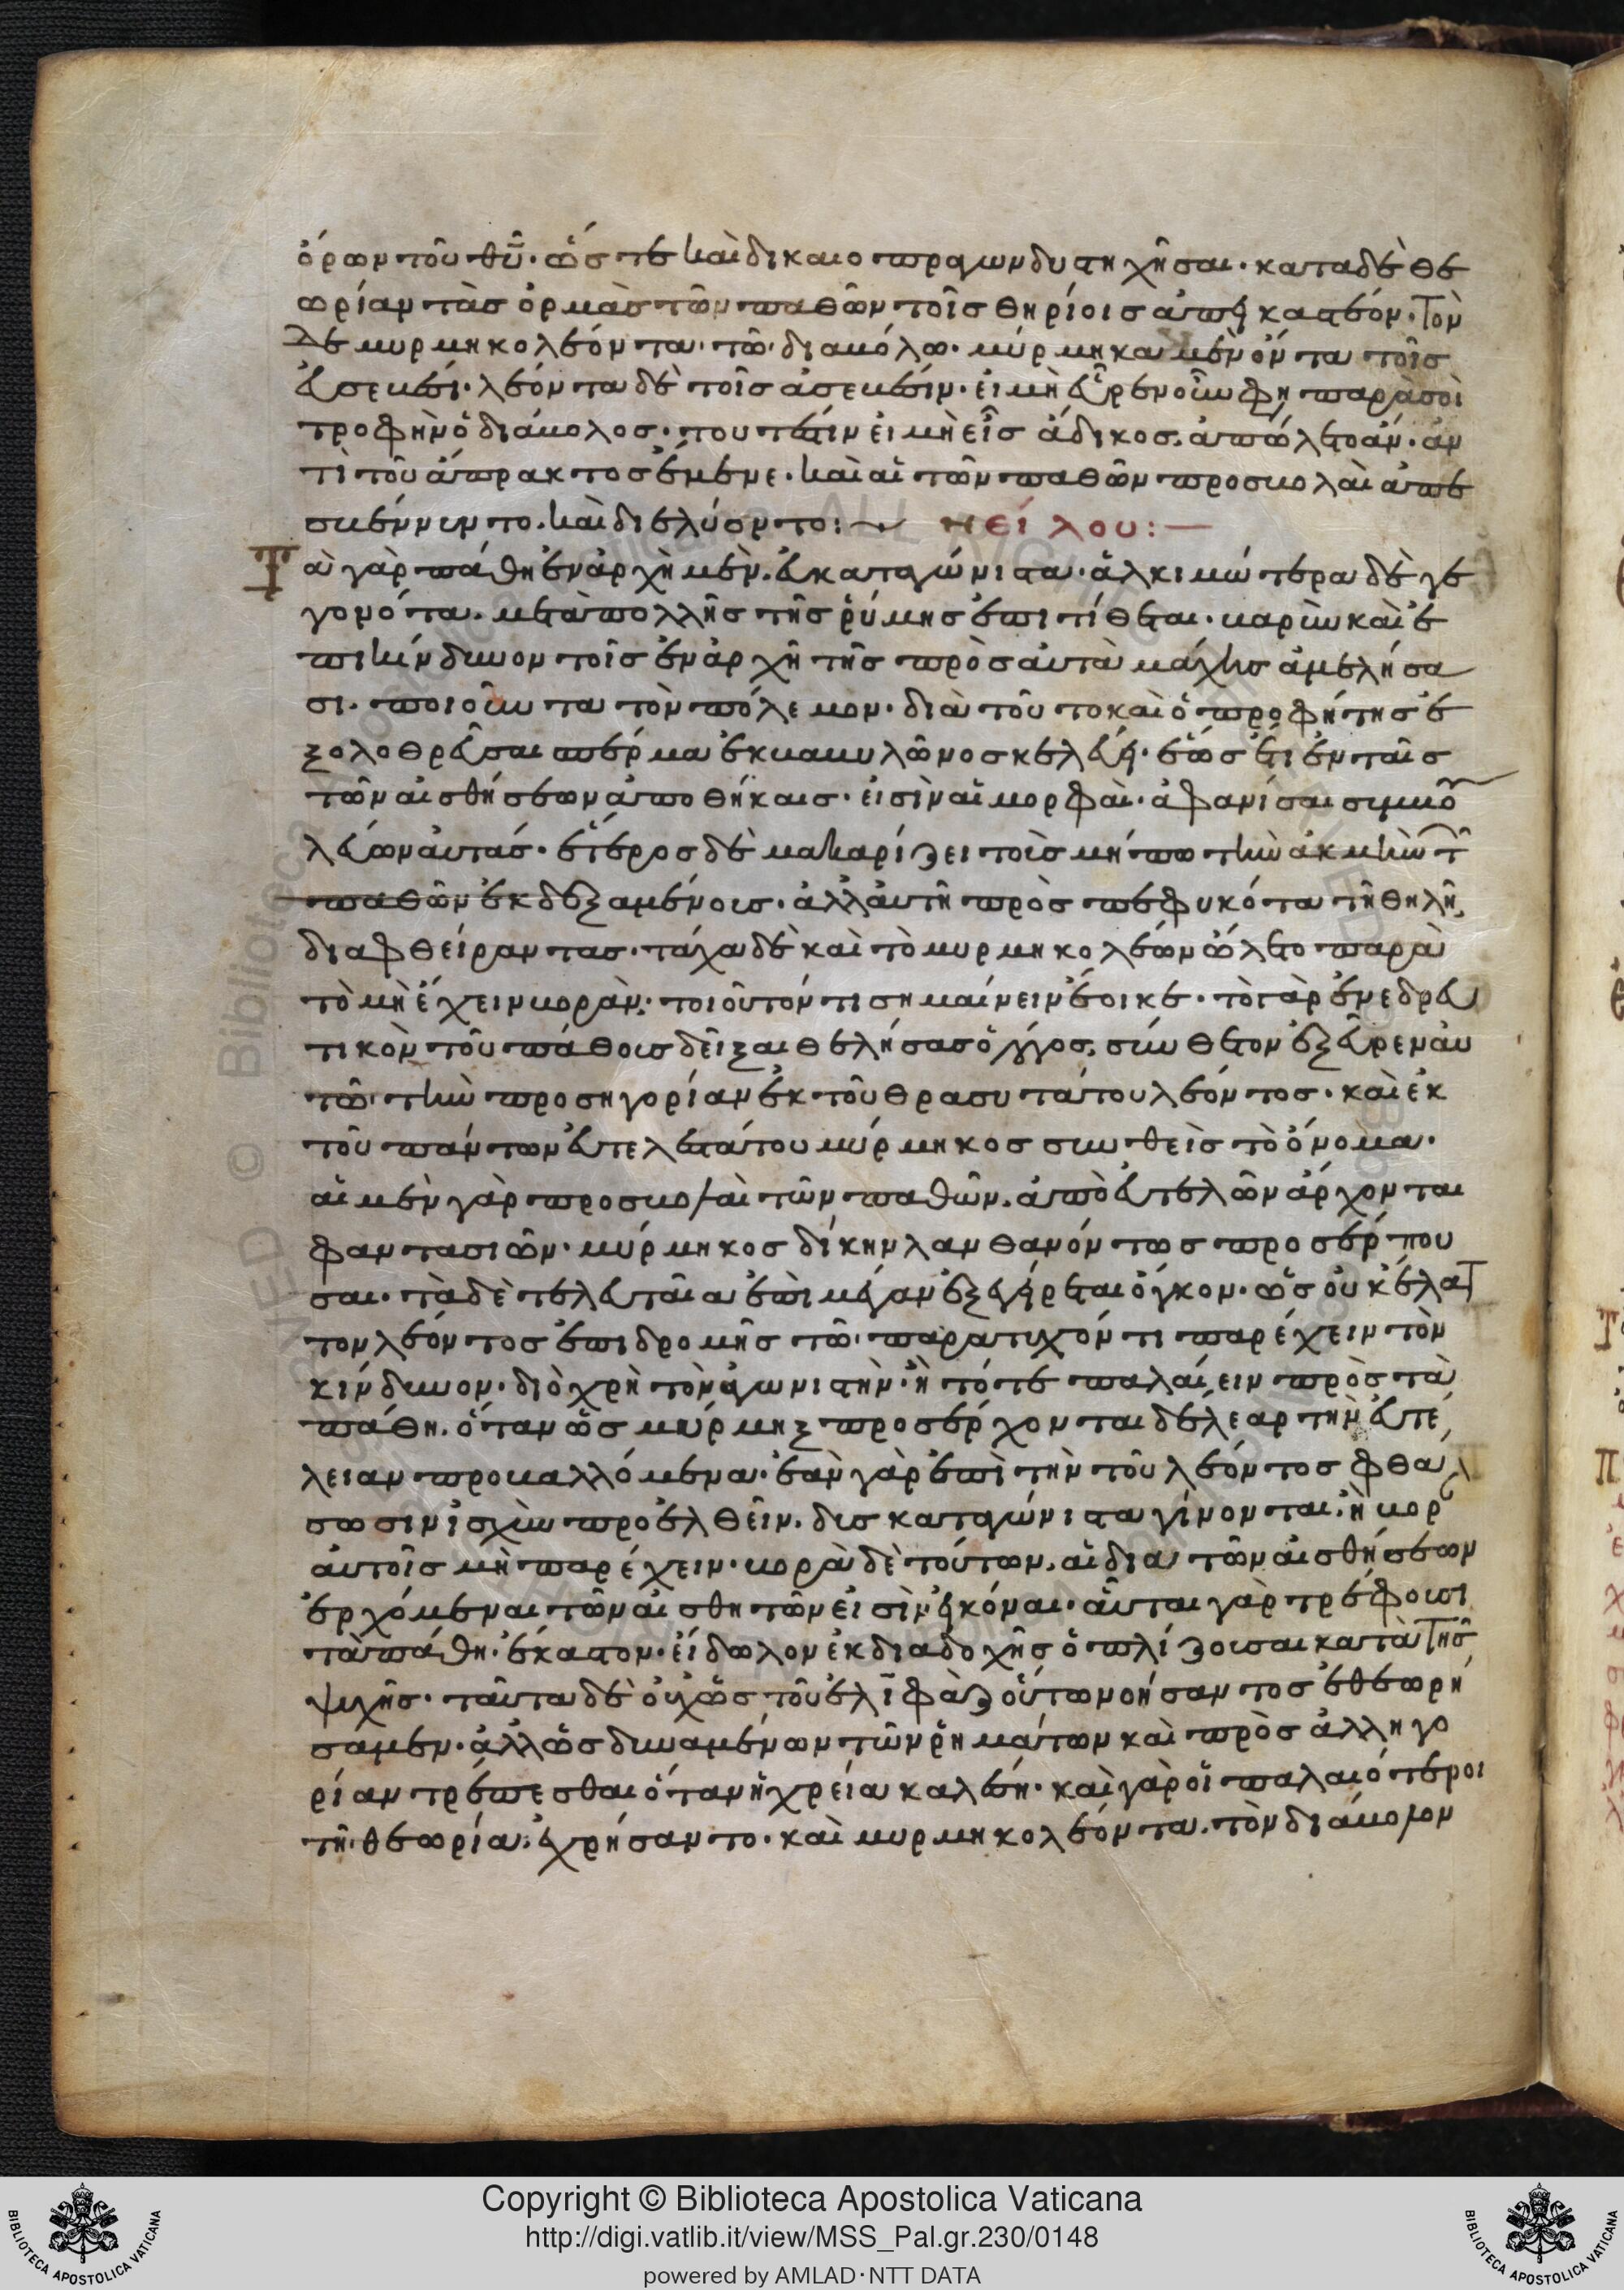 ὁρῶν τοῦ θῦ· ὥστε καὶ δικαιοπραγῶν δυστυχῆσαι· κατὰ δὲ θε
ωρίαν τὰς ὁρμὰς τῶν παθῶν τοῖς θηρίοις ἀπείκαστέον· τὸν
δὲ μυρμηκολέοντα τῶ διαβόλω· μύρμηκα μὲν ὄντα τοῖς
εὐσεβέσι· λέοντα δὲ τοῖς ἀσεβέσιν· εἰ μὴ εὗρεν οὖν φη παρὰ σοὶ
τροφὴν ὁ διάβολος· τουτέστιν εἰ μὴ εἶς ἄδικος, ἀπώλετο ἄν· ἀν
τὶ τοῦ ἄπρακτος ἔμενε· καὶ αἱ τῶν παθῶν προσβολαὶ ἀπε
σβέννυντο· καὶ διελύοντο: Νείλου:
Τὰ γὰρ πάθη ἐν ἀρχῇ μὲν, εὐκαταγώνιστα· ἀλκιμώτερα δὲ γε
γονότα, μετὰ πολλῆς τῆς ῥύμης ἐπιτίθεται· βαρὺν καὶ ἐ
πικίνδυνον τοῖς ἐν ἀρχῇ τῆς πρὸς αὐτὰ μάχης ἀμελήσα
σι· ποιοῦντα τὸν πόλεμον· διὰ τοῦτο καὶ ὁ προφήτης ἐ
ξολοθρεῦσαι σπέρμα ἐκ βαβυλῶνος κελεύει· ἕως ἔτι ἐν ταῖς
τῶν αἰσθήσεων ἀποθήκαις· εἰσὶν αἱ μορφαὶ· ἀφανίσαι συμβο
λεύων αὐτάς· ἕτερος δὲ μακαρίζει τοὺς μήπω τὴν ἀκμὴν τ
παθῶν ἐκδεξαμένους· ἀλλ' αὐτῆ πρὸς πεφυκότα τῆ θηλῆ,
διαφθείραντας· τάχα δὲ καὶ τὸ μυρμηκολέων ὤλετο παρὰ
τὸ μὴ ἔχειν βορὰν· τοιοῦτόν τι σημαίνειν ἔοικε· τὸ γὰρ ἐνεδρευ
τικὸν τοῦ πάθους δεῖξαι θελήσας ὁ λόγος, σύνθετον ἐξεῦρεν αὐ
τῶ τὴν προσηγορίαν ἐκ τοῦ θρασυτάτου λέοντος· καὶ ἐκ
τοῦ πάντων εὐτελεστάτου μύρμηκος συνθεὶς τὸ ὄνομα·
αἱ μὲν γὰρ προσβολαὶ τῶν παθῶν, ἀπὸ εὐτελῶν ἄρχονται
φαντασιῶν· μύρμηκος δίκην λανθανόντως προσέρπου
σαι· τὰ δὲ τελευταῖα ἐπὶ μέγαν ἐξεγείρεται ὄγκον· ὡς οὐκ ἔλατ
τον λέοντος ἐπιδρομῆς τῶ παρατυχόντι παρέχειν τὸν
κίνδυνον· διὸ χρὴ τὸν ἀγωνιστὴν· ἢ τότε παλαίειν πρὸς τὰ
πάθη, ὅταν ὡς μύρμηξ προσέρχονται δέλεαρ τὴν εὐτέ
λειαν προβαλλόμενα· ἐὰν γὰρ ἐπὶ τὴν τοῦ λέοντος φθά
σωσιν ἰσχὺν προελθεῖν, δυσκαταγώνιστα γίνονται, ἢ βορ
αὐτοῖς μὴ παρέχειν· βορὰ δὲ τούτων, αἱ διὰ τῶν αἰσθήσεων
ἐρχόμεναι τῶν αἰσθητῶν εἰσὶν εἰκόναι· αὗται γὰρ τρέφουσι
τὰ πάθη· ἕκαστον εἴδωλον ἐκ διαδοχῆς ὁπλίζουσαι κατὰ τῆς
ψυχῆς· ταῦτα δὲ οὐχ ὡς τοῦ ἐλιφὰζ οὕτω νοήσαντος ἐθεωρή
σαμεν· ἀλλ' ὡς δυναμένων τῶν ῥημάτων καὶ πρὸς ἀλληγο
ρίαν τρέπεσθαι ὅταν ἡ χρεία καλέση· καὶ γὰρ οἱ παλαιότεροι
τῆ θεωρία ἐχρήσαντο· καὶ μυρμηκολέοντα, τὸν διάβολον
Copyright © Biblioteca Apostolica Vaticana
http://digi.vatlib.it/view/MSS_Pal.gr.230/0148
powered by AMLAD·NTT DATA
BIBLIOTECA APOSTOLICA VATICANA
BIBLIOTECA APOSTOLICA VATICANA